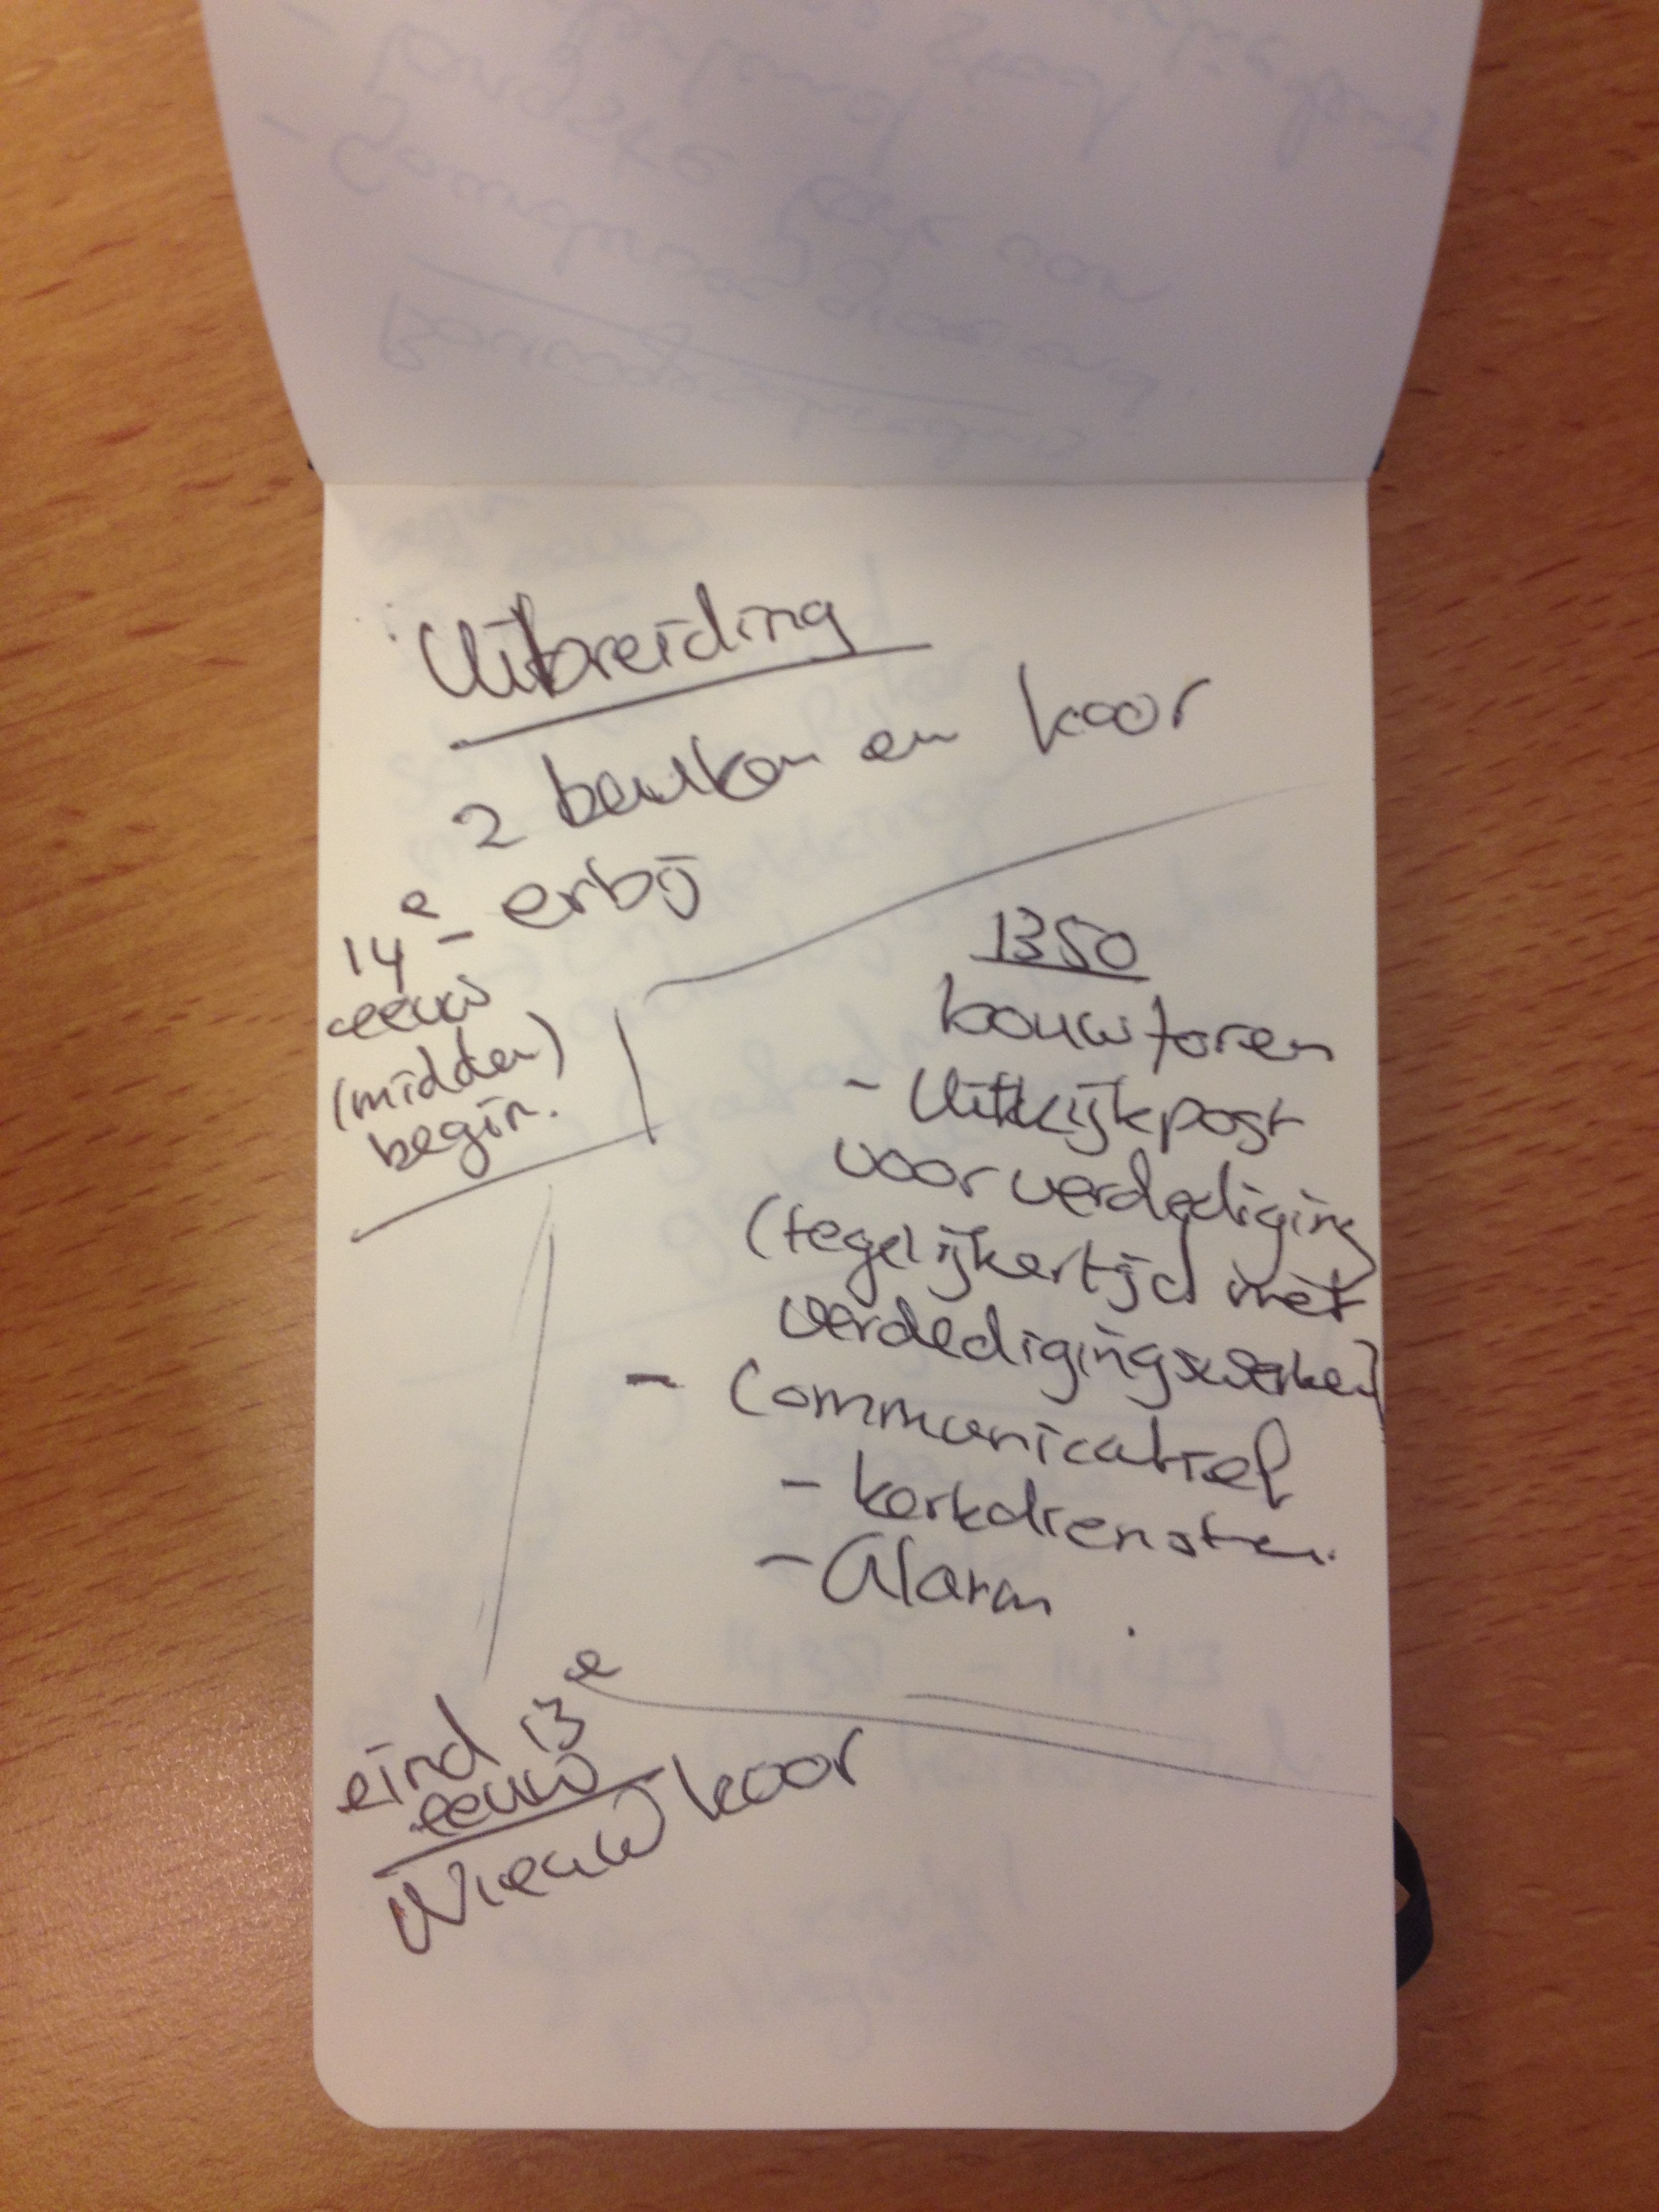 Uitbreiding
2 beuken en koor
erbij
14e
eeuw
(midden)
begin.
1350
bouw toren
- Uitkijkpost
voor verdediging
(tegelijkertijd met
verdedigingswerken)
- Communicatief
- kerkdiensten.
- Alarm
eind 13e
eeuw
Nieuw koor